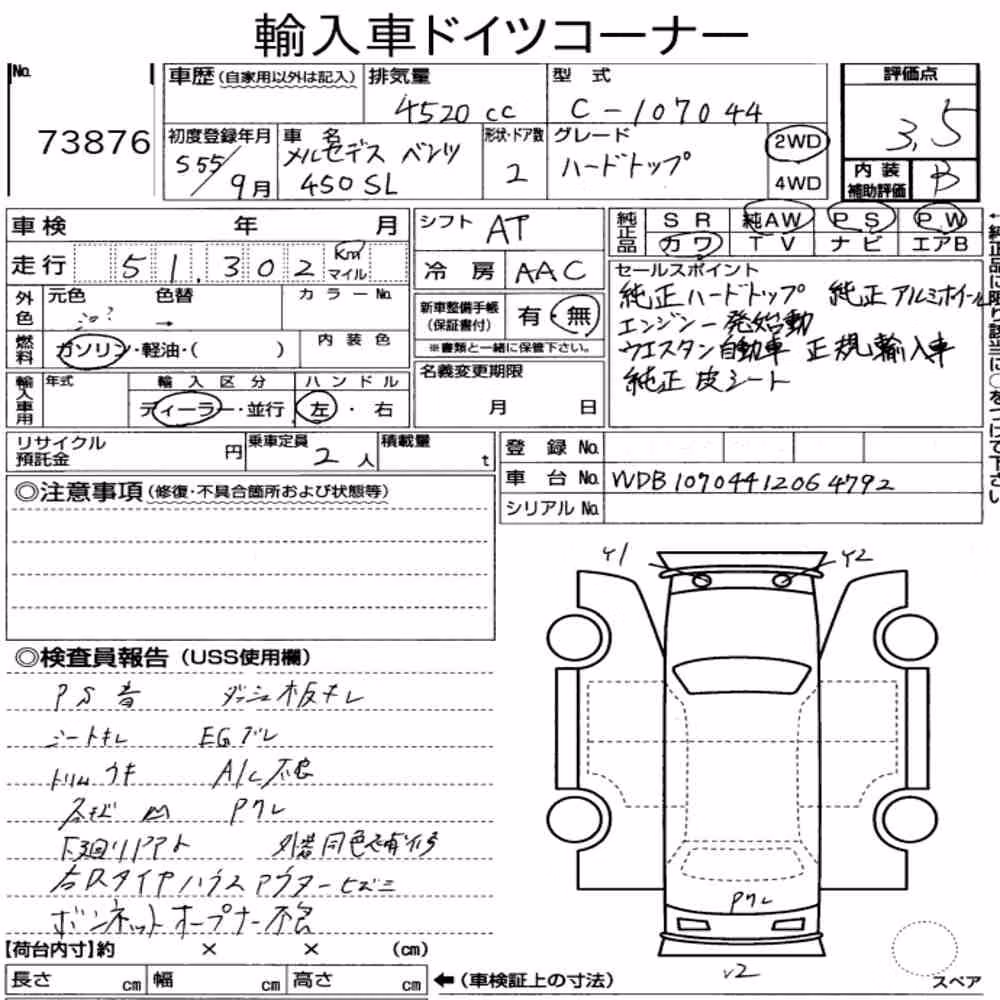 輸入車ドイツコーナー
No.
73876
車歴(自家用以外は記入)
排気量
4520cc
型式
C-107044
評価点
3.5
初度登録年月
S55/9月
車名
メルセデス ベンツ
450SL
形状・ドア数
2
グレード
ハードトップ
2WD
4WD
内装
補助評価
B
車検 年 月
走行 51,302 Km マイル
シフト AT
冷房 AAC
純正品
SR 純AW PS PW
カワ TV ナビ エアB
外色
元色 色替 カラーNo.
→
燃料
ガソリン・軽油・( )
内装色
新車整備手帳
(保証書付)
有・無
※書類と一緒に保管下さい。
セールスポイント
純正ハードトップ 純正アルミホイール
エンジン一発始動
ウエスタン自動車 正規輸入車
純正 皮シート
←純正品に限り該当に○をつけて下さい
輸入車用
年式
輸入区分
ディーラー・並行
ハンドル
左・右
名義変更期限
月 日
リサイクル
預託金
円
乗車定員
2人
積載量
t
登録No.
車台No. WDB10704412064792
シリアルNo.
◎注意事項(修復・不具合箇所および状態等)
◎検査員報告(USS使用欄)
PS音 ダッシュ板キレ
シートキレ EGブレ
トリムウキ A/C不良
サビ 凹 Pクレ
下廻リサビト 外装同色補修
右Rタイヤハウスアウターヒズミ
ボンネットオープナー不良
Y1
Y2
Pクレ
v2
【荷台内寸】約 × × (cm)
長さ cm 幅 cm 高さ cm
←(車検証上の寸法)
スペア